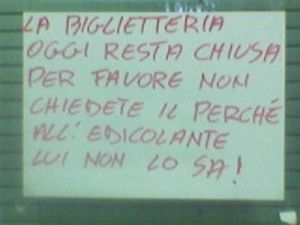 LA BIGLIETTERIA
OGGI RESTA CHIUSA
PER FAVORE NON
CHIEDETE IL PERCHÉ
ALL'EDICOLANTE
LUI NON LO SA!